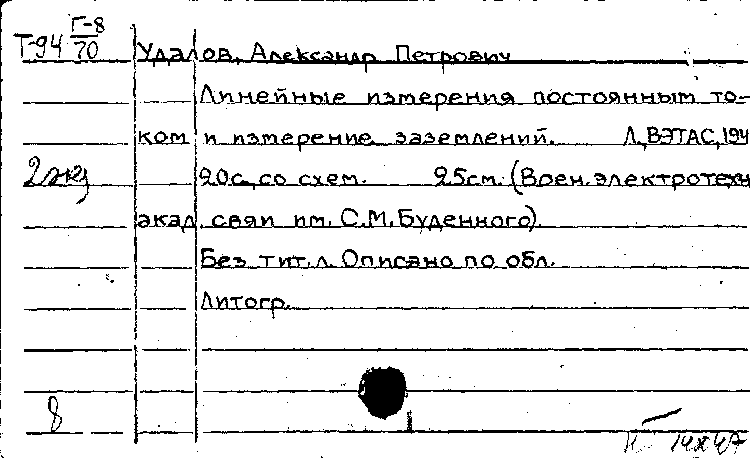 Т-94 Г-8/70
Удалов, Александр Петрович
Линейные измерения постоянным то-
ком и измерение заземлений. Л, ВЭТАС, 194
2 экз
20с, со схем. 25см. (Воен. электротехн
акад. связи им. С.М. Буденного).
Без тит. л. Описано по обл.
Литогр.
8